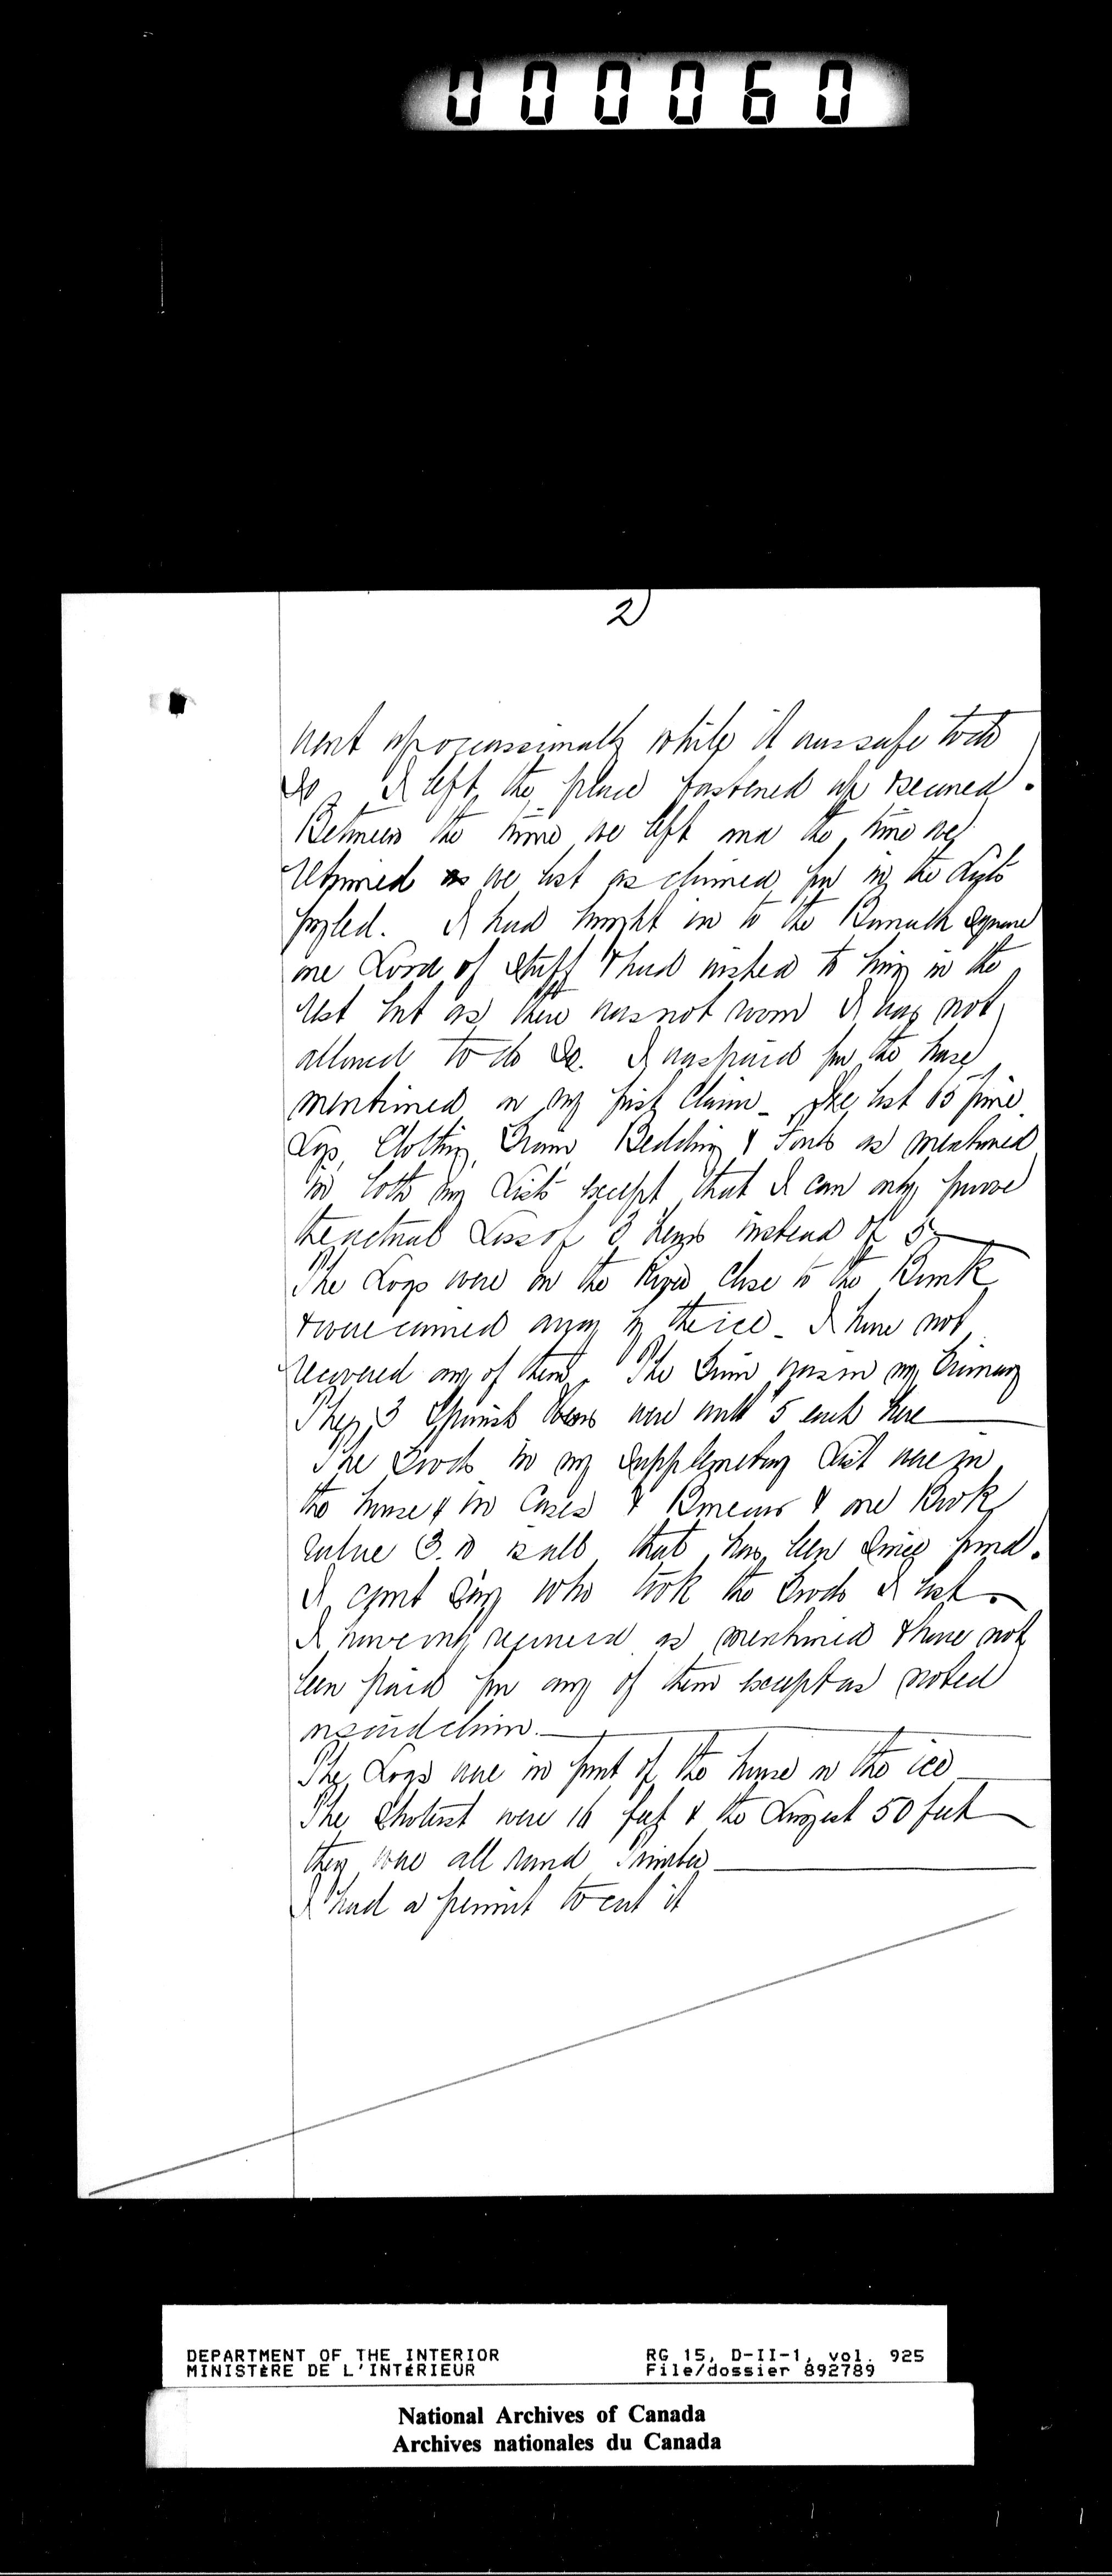 000060
2)
went up occassionally while it was safe to do
so I left the place fastened up & secured.
Between the time we left and the time we
returned we lost as claimed for in the Lists
fyled. I had brought in to the Barrack Square
one Load of Stuff & had wished to bring in the
rest but as there was not room I was not
allowed to do so. I was paid for the horse
mentioned in my first Claim_ We lost 65 pine
Logs, Clothing, Grain Bedding & Tools as mentioned
in both my Lists except that I can only prove
the actual Loss of 3 hens instead of 5
The Logs were on the River Close to the Bank
& were carried away by the ice_ I have not
recovered any of them. The Grain was in my Granary
They 3 Spanish Hens were worth 5 each here
The Goods in my Supplementary List were in
the house & in Cases & Bureaus & one Book
value 3. is all that has been since found.
I can't say who took the Goods I lost.
I have only recovered as mentioned & have not
been paid for any of them except as noted
in said claim.
The Logs were in front of the house on the ice
The Shortest were 16 feet & the Longest 50 feet
they were all round Timber
I had a permit to cut it
DEPARTMENT OF THE INTERIOR
MINISTÈRE DE L'INTÉRIEUR
RG 15, D-II-1, vol. 925
File/dossier 892789
National Archives of Canada
Archives nationales du Canada